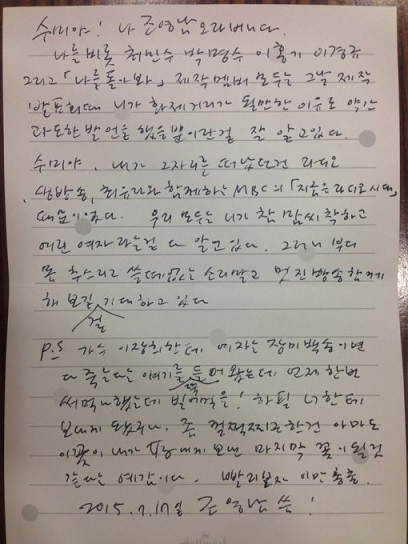 수미야! 나 조영남 오라버니다.
나를 비롯 최민수 박명수 이홍기 이경규
그리고 「나를 돌아봐」 제작 멤버 모두는 그날 제작
발표회 때 니가 화제거리가 될만한 이유로 약간
과도한 발언을 했을 뿐이란걸 잘 알고있다.
수미야, 내가 그자리를 떠났던건 라디오
생방송, 최유라와 함께하는 MBC의 「지금은 라디오 시대」
때문이었다. 우리 모두는 니가 참 맘씨 착하고
여린 여자라는걸 다 알고있다. 그러니 부디
몸 추스리고 쓸데없는 소리말고 멋진 방송 함께
해 보길 기대하고 있다
걸
P.S 가수 이장희한테 여자는 장미 백송이면
다 죽는다는 얘기를 듣고 언제 한번
써먹나 했는데 빌어먹을! 하필 너한테
보내게 됐구나. 좀 껄쩍찌근한건 아마도
이 꽃이 내가 보낸 마지막 꽃이 될것
같다는 예감이다. 빨리보자 이만 총총.
2015. 7. 17일 조영남 씀!